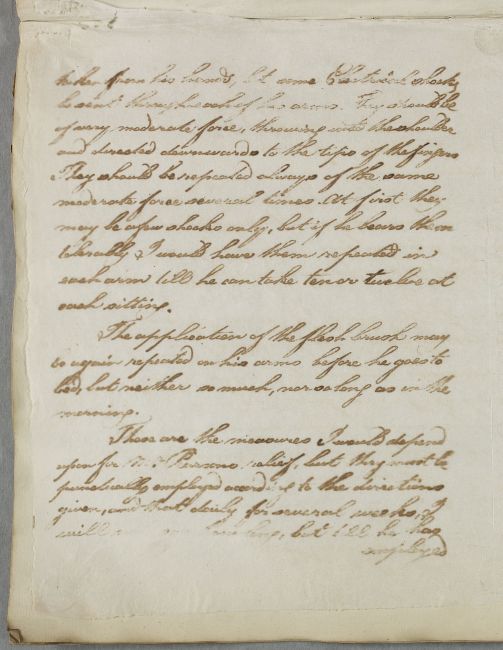 taken from his hands, let some Electrical shocks
be sent through each of his arms. They should be
of very moderate force, throwing into the shoulder
and directed downwards to the tips of the fingers
They should be repeated always of the same
moderate force several times. At first they
may be a few shocks only, but if he bears them
tolerably I would have them repeated in
each arm till he can take ten or twelve at
each sitting.
The application of the flesh brush may
be again repeated on his arms before he goes to
bed, but neither so much, nor so long as in the
morning.
These are the measures I would depend
upon for Mr relief, but they must be
punctually employed according to the directions
given, and that daily for several weeks. I
will but till he has
employed